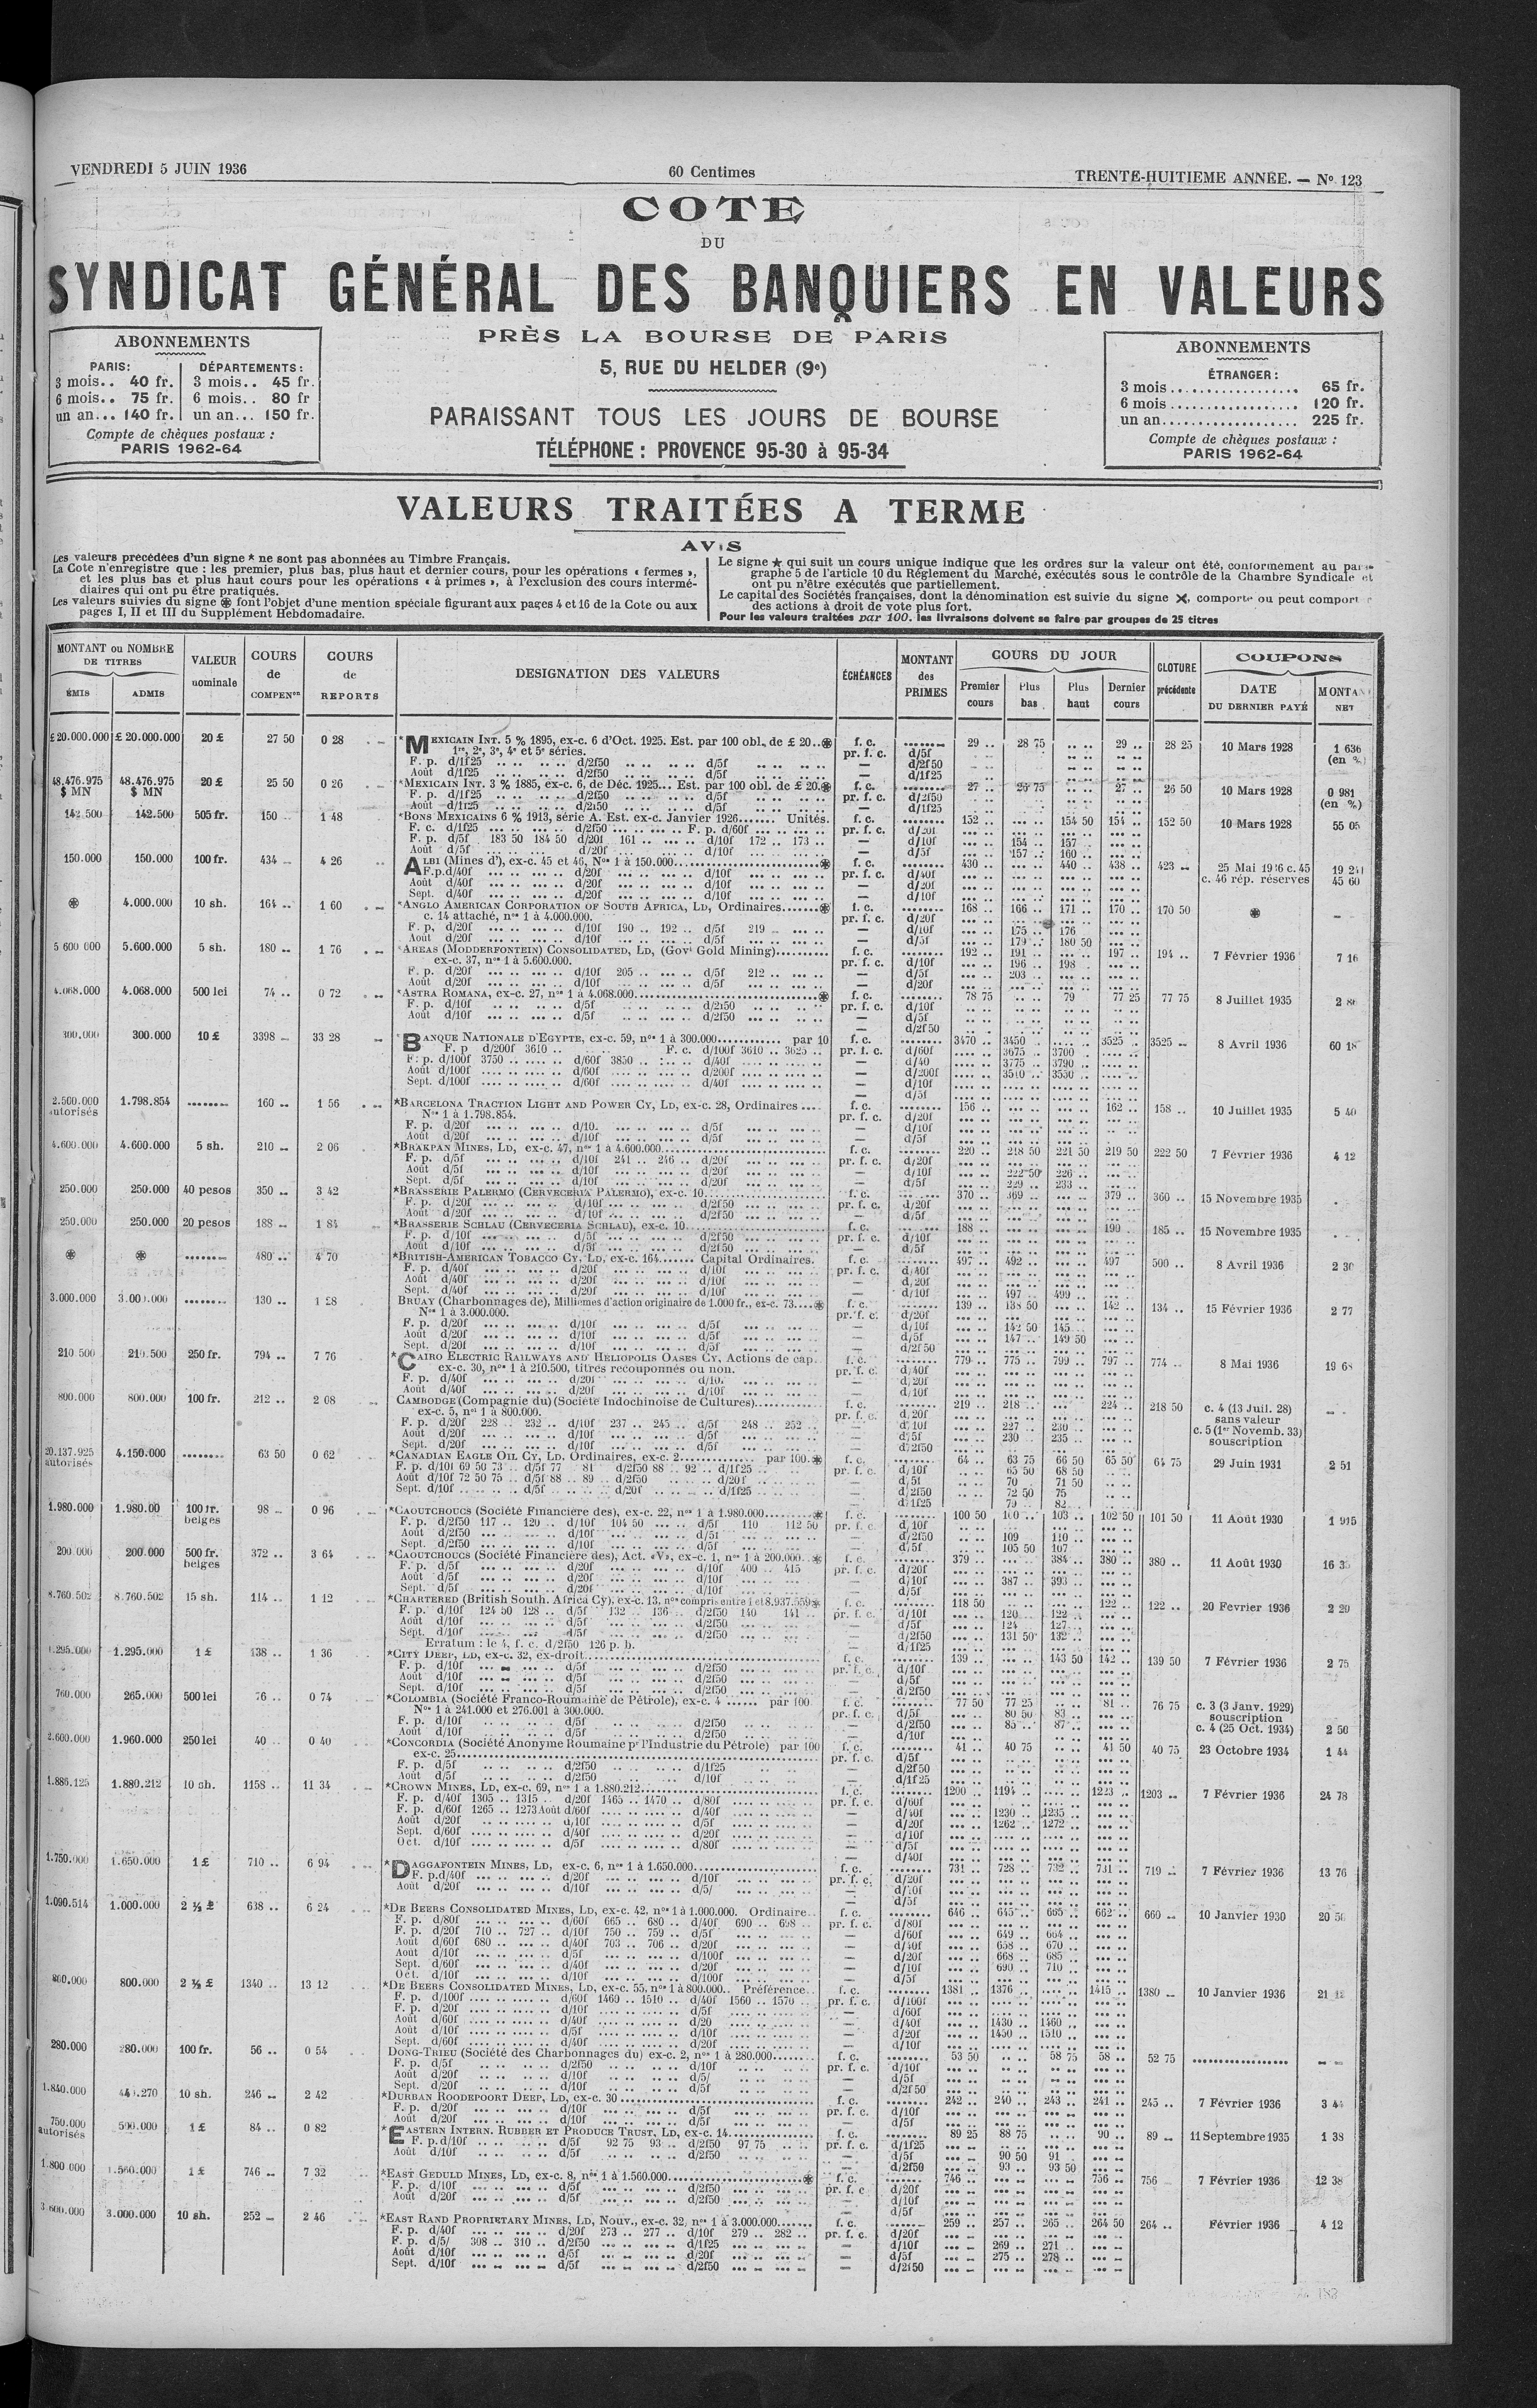 VENDREDI 5 JUIN 1936
60 Centimes
TRENTE-HUITIEME ANNÉE. — Nº 123
COTE
DU
SYNDICAT GÉNÉRAL DES BANQUIERS EN VALEURS
PRÈS LA BOURSE DE PARIS
5, RUE DU HELDER (9e)
PARAISSANT TOUS LES JOURS DE BOURSE
TÉLÉPHONE : PROVENCE 95-30 à 95-34
ABONNEMENTS
PARIS: DÉPARTEMENTS:
3 mois.. 40 fr. 3 mois.. 45 fr.
6 mois.. 75 fr. 6 mois.. 80 fr
un an... 140 fr. un an... 150 fr.
Compte de chèques postaux :
PARIS 1962-64
ABONNEMENTS
ÉTRANGER :
3 mois .................. 65 fr.
6 mois .................. 120 fr.
un an................... 225 fr.
Compte de chèques postaux :
PARIS 1962-64
VALEURS TRAITÉES A TERME
AVIS
Les valeurs précédées d'un signe * ne sont pas abonnées au Timbre Français.
La Cote n'enregistre que : les premier, plus bas, plus haut et dernier cours, pour les opérations « fermes »,
et les plus bas et plus haut cours pour les opérations « à primes », à l'exclusion des cours intermé-
diaires qui ont pu être pratiqués.
Les valeurs suivies du signe ⊛ font l'objet d'une mention spéciale figurant aux pages 4 et 16 de la Cote ou aux
pages I, II et III du Supplément Hebdomadaire.
Le signe ★ qui suit un cours unique indique que les ordres sur la valeur ont été, conformement au para-
graphe 5 de l'article 10 du Réglement du Marché, exécutés sous le contrôle de la Chambre Syndicale et
ont pu n'être exécutés que partiellement.
Le capital des Sociétés françaises, dont la dénomination est suivie du signe ✕, comporte ou peut comport
des actions à droit de vote plus fort.
Pour les valeurs traitées par 100. les livraisons doivent se faire par groupes de 25 titres
MONTANT ou NOMBRE DE TITRES
ÉMIS ADMIS
VALEUR nominale
COURS de COMPENon
COURS de REPORTS
DESIGNATION DES VALEURS
ÉCHÉANCES
MONTANT des PRIMES
COURS DU JOUR
Premier cours Plus bas Plus haut Dernier cours
CLOTURE précédente
COUPONS
DATE DU DERNIER PAYÉ
MONTANT NET
£ 20.000.000 £ 20.000.000 20 £ 27 50 0 28 *MEXICAIN INT. 5 % 1895, ex-c. 6 d'Oct. 1925. Est. par 100 obl. de £ 20..⊛ f. c. 29 .. 28 75 .. .. 29 .. 28 25 10 Mars 1928 1 636
1re, 2e, 3e, 4e et 5e séries. pr. f. c. d/5f (en %)
F. p. d/1f25 d/2f50 d/5f — d/2f50
Août d/1f25 d/2f50 d/5f — d/1f25
48.476.975 $ MN 48.476.975 $ MN 20 £ 25 50 0 26 *MEXICAIN INT. 3 % 1885, ex-c. 6, de Déc. 1925... Est. par 100 obl. de £ 20.⊛ f. c. 27 .. 26 75 .. .. 27 .. 26 50 10 Mars 1928 0 981
F. p. d/1f25 d/2f50 d/5f pr. f. c. d/2f50 (en %)
Août d/1f25 d/2f50 d/5f — d/1f25
142.500 142.500 505 fr. 150 1 48 *BONS MEXICAINS 6 % 1913, série A. Est. ex-c. Janvier 1926....... Unités. f. c. 152 .. 154 50 154 .. 152 50 10 Mars 1928 55 05
F. c. d/1f25 d/2f50 F. p. d/60f pr. f. c. d/20f
F. p. d/5f 183 50 184 50 d/20f 161 .. d/10f 172 .. 173 .. — d/10f 154 .. 157 ..
Août d/5f d/20f d/10f — d/5f 157 .. 160 ..
150.000 150.000 100 fr. 434 4 26 ALBI (Mines d'), ex-c. 45 et 46, Nos 1 à 150.000 ⊛ f. c. 430 .. 440 .. 438 .. 423 25 Mai 1936 c. 45
F.p. d/40f d/20f d/10f pr. f. c. d/40f c. 46 rép. réserves 45 60
Août d/40f d/20f d/10f — d/20f
Sept. d/40f d/20f d/10f — d/10f
⊛ 4.000.000 10 sh. 164 .. 1 60 *ANGLO AMERICAN CORPORATION OF SOUTH AFRICA, LD, Ordinaires.......⊛ f. c. 168 .. 166 .. 171 .. 170 .. 170 50 ⊛
c. 14 attaché, nos 1 à 4.000.000. pr. f. c. d/20f
F. p. d/20f d/10f 190 .. 192 .. d/5f 219 — d/10f 175 .. 176
Août d/20f d/10f d/5f — d/5f 179 .. 180 50
5 600 000 5.600.000 5 sh. 180 1 76 *AREAS (MODDERFONTEIN) CONSOLIDATED, LD, (Govt Gold Mining) f. c. 192 .. 191 .. 197 .. 194 .. 7 Février 1936 7 16
ex-c. 37, nos 1 à 5.600.000. pr. f. c. d/10f 196 .. 198
F. p. d/20f d/10f 205 .. d/5f 212 .. — d/5f 203 ..
Août d/20f d/10f d/5f — d/20f
4.068.000 4.068.000 500 lei 74 .. 0 72 *ASTRA ROMANA, ex-c. 27, nos 1 à 4.068.000 ⊛ f. c. 78 75 79 77 25 77 75 8 Juillet 1935
F. p. d/10f d/5f d/2f50 pr. f. c. d/10f
Août d/10f d/5f d/2f50 — d/5f
— d/2f50
300.000 300.000 10 £ 3398 33 28 *BANQUE NATIONALE D'EGYPTE, ex-c. 59, nos 1 à 300.000 par 10 f. c. 3470 .. 3450 .. 3525 .. 3525 8 Avril 1936 60 18
F. p d/200f 3610 .. F. c. d/100f 3610 .. 3625 .. pr. f. c. d/60f 3675 .. 3700 ..
F. p. d/100f 3750 d/60f 3850 d/40f — d/40 3775 .. 3790 ..
Août d/100f d/60f d/200f — d/200f 3510 .. 3550 ..
Sept. d/100f d/60f d/40f — d/10f
— d/5f
2.500.000 autorisés 1.798.854 160 1 56 *BARCELONA TRACTION LIGHT AND POWER CY, LD, ex-c. 28, Ordinaires .... f. c. 156 .. 162 .. 158 .. 10 Juillet 1935 5 40
Nos 1 à 1.798.854. pr. f. c. d/20f
F. p. d/20f d/10. d/5f — d/10f
Août d/20f d/10f d/5f — d/5f
4.600.000 4.600.000 5 sh. 210 2 06 *BRAKPAN MINES, LD, ex-c. 47, nos 1 à 4.600.000 f. c. 220 .. 218 50 221 50 219 50 222 50 7 Février 1936 4 12
F. p. d/5f d/10f 241 .. 246 .. d/20f pr. f. c. d/20f
Août d/5f d/10f d/20f — d/10f 222 50 226 ..
Sept. d/5f d/10f d/20f — d/5f 229 .. 233 ..
250.000 250.000 40 pesos 350 3 42 *BRASSERIE PALERMO (CERVECERIA PALERMO), ex-c. 10 f. c. 370 .. 369 .. 379 .. 360 .. 15 Novembre 1935
F. p. d/20f d/10f d/2f50 pr. f. c. d/20f
Août d/20f d/10f d/2f50 — d/5f
250.000 250.000 20 pesos 188 1 84 *BRASSERIE SCHLAU (CERVECERIA SCHLAU), ex-c. 10 f. c. 188 .. 190 .. 185 .. 15 Novembre 1935
F. p. d/10f d/5f d/2f50 pr. f. c. d/10f
Août d/10f d/5f d/2f50 — d/5f
⊛ ⊛ 480 .. 4 70 *BRITISH-AMERICAN TOBACCO CY, LD, ex-c. 164....... Capital Ordinaires. f. c. 497 .. 492 .. 497 500 .. 8 Avril 1936 2 30
F. p. d/40f d/20f d/10f pr. f. c. d/40f
Août d/40f d/20f d/10f — d/20f
Sept. d/40f d/20f d/10f — d/10f 497 .. 499 ..
3.000.000 3.000.000 130 1 28 BRUAY (Charbonnages de), Millièmes d'action originaire de 1.000 fr., ex-c. 73....⊛ f. c. 139 .. 138 50 142 .. 134 .. 15 Février 1936 2 77
Nos 1 à 3.000.000. pr. f. c. d/20f
F. p. d/20f d/10f d/5f — d/10f 142 50 145 ..
Août d/20f d/10f d/5f — d/5f 147 .. 149 50
Sept. d/20f d/10f d/5f — d/2f50
210 500 210.500 250 fr. 794 7 76 *CAIRO ELECTRIC RAILWAYS AND HELIOPOLIS OASES CY, Actions de cap. f. c. 779 .. 775 .. 799 .. 797 .. 774 8 Mai 1936 19 68
ex-c. 30, nos 1 à 210.500, titres recouponnés ou non. pr. f. c. d/40f
F. p. d/40f d/20f d/10. — d/20f
Août d/40f d/20f d/10f — d/10f
800.000 800.000 100 fr. 212 .. 2 08 CAMBODGE (Compagnie du) (Société Indochinoise de Cultures) f. c. 219 .. 218 .. 224 .. 218 50 c. 4 (13 Juil. 28)
ex-c. 5, nos 1 à 800.000. pr. f. c. d/20f sans valeur
F. p. d/20f 228 .. 232 .. d/10f 237 .. 245 .. d/5f 248 .. 252 .. — d/10f 227 .. 230 .. c. 5 (1er Novemb. 33)
Août d/20f d/10f d/5f — d/5f 230 .. 235 .. souscription
Sept. d/20f d/10f d/5f — d/2f50
20.137.925 autorisés 4.150.000 63 50 0 62 *CANADIAN EAGLE OIL CY, LD. Ordinaires, ex-c. 2 par 100.⊛ f. c. 64 .. 63 75 66 50 65 50 64 75 29 Juin 1931 2 51
F. p. d/10f 69 50 73 .. d/5f 77 81 d/2f50 88 .. 92 .. d/1f25 pr. f. c. d/10f 65 50 68 50
Août d/10f 72 50 75 .. d/5f 88 .. 89 .. d/2f50 d/20f — d/5f 70 71 50
Sept. d/10f d/5f d/20f d/1f25 — d/2f50 72 50 75
— d/1f25 79 .. 82
1.980.000 1.980.00 100 fr. belges 98 0 96 *CAOUTCHOUCS (Société Financière des), ex-c. 22, nos 1 à 1.980.000 ⊛ f. c. 100 50 100 .. 103 .. 102 50 101 50 11 Août 1930 1 915
F. p. d/2f50 117 .. 120 .. d/10f 104 50 d/5f 110 112 50 pr. f. c. d/10f
Août d/2f50 d/10f d/5f — d/2f50 109 110 ..
Sept. d/2f50 d/10f d/5f — d/5f 105 50 107
200.000 200.000 500 fr. belges 372 .. 3 64 *CAOUTCHOUCS (Société Financière des), Act. «V», ex-c. 1, nos 1 à 200.000..⊛ f. c. 379 .. 384 .. 380 .. 380 .. 11 Août 1930
F. p. d/5f d/20f d/10f 409 .. 415 pr. f. c. d/20f
Août d/5f d/20f d/10f — d/10f 387 .. 393 ..
Sept. d/5f d/20f d/10f — d/5f
8.760.502 8.760.502 15 sh. 114 .. 1 12 *CHARTERED (British South. Africa Cy), ex-c. 13, nos compris entre 1 et 8.937.559⊛ f. c. 118 50 122 .. 122 .. 20 Fevrier 1936 2 29
F. p. d/10f 124 50 128 .. d/5f 132 .. 136 .. d/2f50 140 141 .. pr. f. c. d/10f 120 .. 122 ..
Août d/10f d/5f d/2f50 — d/5f 124 127
Sept. d/10f d/5f d/2f50 — d/2f50 131 50 132 ..
Erratum : le 4, f. c. d/2f50 126 p. b. — d/1f25
1.295.000 1.295.000 1 £ 138 .. 1 36 *CITY DEEP, LD, ex-c. 32, ex-droit f. c. 139 .. 143 50 142 .. 139 50 7 Février 1936 2 75
F. p. d/10f d/5f d/2f50 pr. f. c. d/10f
Août d/10f d/5f d/2f50 — d/5f
Sept. d/10f d/5f d/2f50 — d/2f50
760.000 265.000 500 lei 76 .. 0 74 *COLOMBIA (Société Franco-Roumaine de Pétrole), ex-c. 4 ...... par 100 f. c. 77 50 77 25 81 .. 76 75 c. 3 (3 Janv. 1929)
Nos 1 à 241.000 et 276.001 à 300.000. pr. f. c. d/5f 80 50 83 .. souscription
F. p. d/10f d/5f d/2f50 — d/2f50 85 .. 87 .. c. 4 (25 Oct. 1934) 2 50
Août d/10f d/5f d/2f50 — d/10f
2.600.000 1.960.000 250 lei 40 .. 0 40 *CONCORDIA (Société Anonyme Roumaine pr l'Industrie du Pétrole) par 100 f. c. 41 .. 40 75 41 50 40 75 23 Octobre 1934 1 44
ex-c. 25 pr. f. c. d/5f
F. p. d/5f d/2f50 d/1f25 — d/2f50
Août d/5f d/2f50 d/10f — d/1f25
1.886.125 1.880.212 10 sh. 1158 .. 11 34 *CROWN MINES, LD, ex-c. 69, nos 1 à 1.880.212 f. c. 1200 .. 1194 .. 1223 .. 1203 7 Février 1936 24 78
F. p. d/40f 1305 .. 1315 .. d/20f 1465 .. 1470 .. d/80f pr. f. c. d/60f
F. p. d/60f 1265 .. 1273 Août d/60f d/40f — d/40f 1230 .. 1235 ..
Août d/20f d/10f d/5f — d/20f 1262 .. 1272 ..
Sept. d/60f d/40f d/20f — d/10f
Oct. d/10f d/5f d/80f — d/5f
— d/40f
1.750.000 1.650.000 1 £ 710 .. 6 94 *DAGGAFONTEIN MINES, LD, ex-c. 6, nos 1 à 1.650.000 f. c. 731 .. 728 .. 732 .. 731 .. 719 7 Février 1936 13 76
F. p. d/40f d/20f d/10f pr. f. c. d/20f
Août d/20f d/10f d/5/ — d/10f
— d/5f
1.090.514 1.000.000 2 ½ £ 638 .. 6 24 *DE BEERS CONSOLIDATED MINES, LD, ex-c. 42, nos 1 à 1.000.000. Ordinaire.. f. c. 646 .. 645 .. 665 .. 662 .. 660 10 Janvier 1930
F. p. d/80f d/60f 665 .. 680 .. d/40f 690 .. 698 .. pr. f. c. d/80f
F. p. d/20f 710 .. 727 .. d/10f 750 .. 759 .. d/5f — d/60f 649 .. 664 ..
Août d/60f 680 .. d/40f 703 .. 706 .. d/20f — d/40f 658 .. 670 ..
Août d/10f d/5f d/100f — d/20f 668 .. 685 ..
Sept. d/60f d/40f d/20f — d/10f 690 .. 710 ..
Oct. d/10f d/10f d/100f — d/5f
800.000 800.000 2 ½ £ 1340 .. 13 12 *DE BEERS CONSOLIDATED MINES, LD, ex-c. 55, nos 1 à 800.000.. Préférence.. f. c. 1381 .. 1376 .. 1415 .. 1380 10 Janvier 1936
F. p. d/100f d/60f 1460 .. 1510 .. d/40f 1560 .. 1570 .. pr. f. c. d/100f
F. p. d/20f d/10f d/5f — d/60f
Août d/60f d/40f d/20 — d/40f 1430 .. 1460 ..
Août d/10f d/5f d/10f — d/20f 1450 .. 1510 ..
Sept. d/60f d/40f d/20f — d/10f
280.000 280.000 100 fr. 56 .. 0 54 DONG-TRIEU (Société des Charbonnages du) ex-c. 2, nos 1 à 280.000 f. c. 53 50 58 75 58 .. 52 75
F. p. d/5f d/2f50 d/10f pr. f. c. d/10f
Août d/20f d/10f d/5/ — d/5f
Sept. d/20f d/10f d/5f — d/2f50
1.840.000 10 sh. 246 2 42 *DURBAN ROODEPOORT DEEP, LD, ex-c. 30 f. c. 242 .. 240 .. 243 .. 241 .. 245 .. 7 Février 1936 3 44
F. p. d/20f d/10f d/5f pr. f. c. d/10f
Août d/20f d/10f d/5f — d/5f
750.000 autorisés 500.000 1 £ 84 .. 0 82 *EASTERN INTERN. RUBBER ET PRODUCE TRUST, LD, ex-c. 14 f. c. 89 25 88 75 90 .. 89 11 Septembre 1935 1 38
F. p. d/10f d/5f 92 75 93 .. d/2f50 97 75 pr. f. c. d/1f25
Août d/10f d/5f d/2f50 — d/5f 90 50 91
— d/2f50 93 .. 93 50
1.800 000 1.560.000 1 £ 746 7 32 *EAST GEDULD MINES, LD, ex-c. 8, nos 1 à 1.560.000 ⊛ f. c. 746 .. 756 .. 756 7 Février 1936 12 38
F. p. d/10f d/5f d/2f50 pr. f. c d/20f
Août d/20f d/5f d/2f50 — d/10f
— d/5f
3.600.000 3.000.000 10 sh. 252 2 46 *EAST RAND PROPRIETARY MINES, LD, Nouv., ex-c. 32, nos 1 à 3.000.000 f. c. 259 .. 257 .. 265 .. 264 50 264 .. Février 1936 4 12
F. p. d/40f d/20f 273 .. 277 .. d/10f 279 .. 282 .. pr. f. c. d/20f
F. p. d/5/ 308 .. 310 .. d/2f50 d/1f25 — d/10f 269 .. 271 ..
Août d/10f d/5f d/20f — d/5f 275 .. 278 ..
Sept. d/10f d/5f d/2f50 — d/2f50